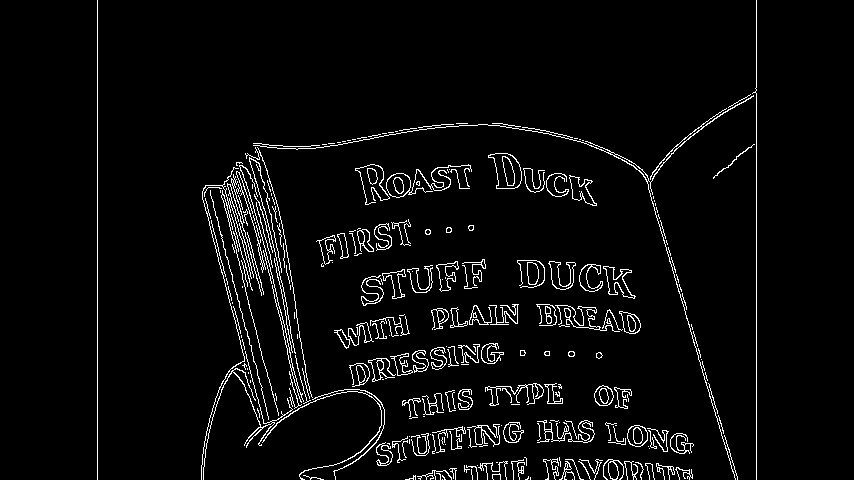 ROAST DUCK
FIRST...
STUFF DUCK
WITH PLAIN BREAD
DRESSING....
THIS TYPE OF
STUFFING HAS LONG
THE FAVORITE